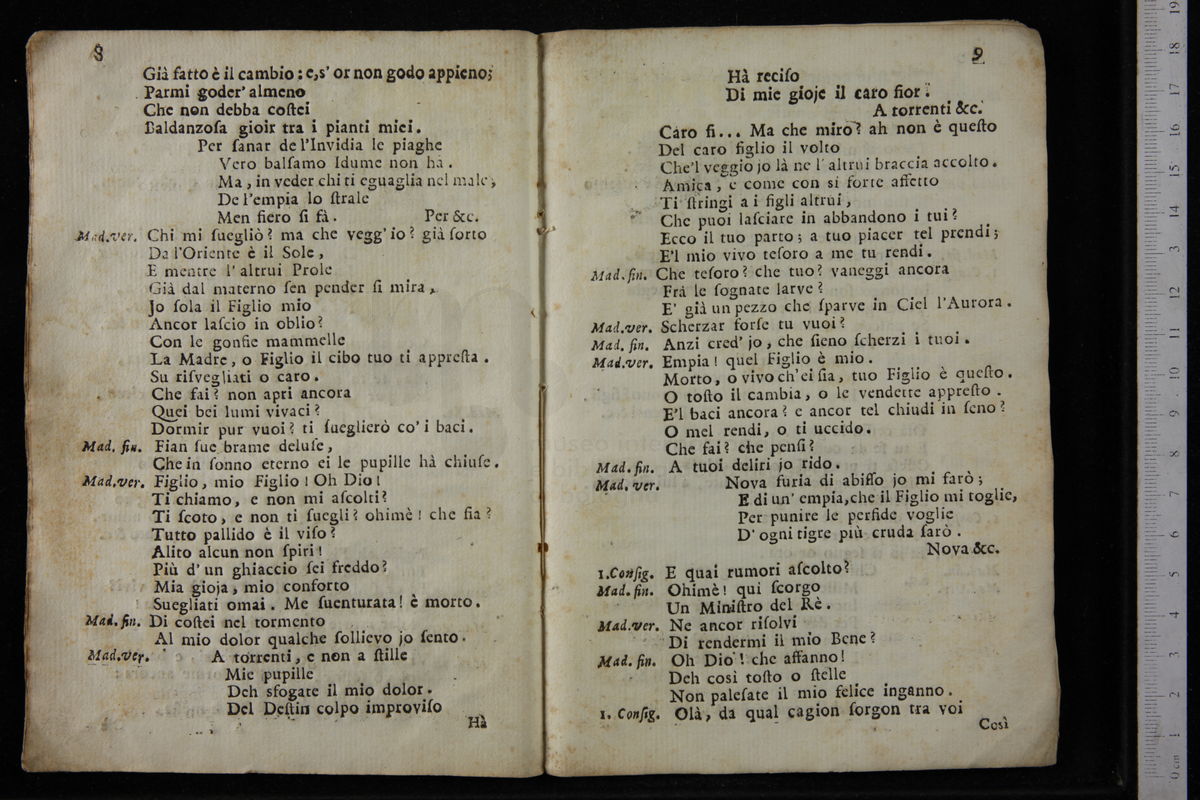 8
Già fatto è il cambio : e, s' or non godo appieno;
Parmi goder' almeno
Che non debba coſtei
Baldanzoſa gioir tra i pianti miei.
Per ſanar de l'Invidia le piaghe
Vero balſamo Idume non hà.
Ma, in veder chi ti eguaglia nel male,
De l'empia lo ſtrale
Men fiero ſi fà. Per &c.
Mad.ver. Chi mi ſuegliò? ma che vegg' io? già ſorto
Da l'Oriente è il Sole,
E mentre l' altrui Prole
Già dal materno ſen pender ſi mira,
Jo ſola il Figlio mio
Ancor laſcio in oblio?
Con le gonfie mammelle
La Madre, o Figlio il cibo tuo ti appreſta.
Su riſvegliati o caro.
Che fai? non apri ancora
Quei bei lumi vivaci?
Dormir pur vuoi? ti ſueglierò co' i baci.
Mad. fin. Fian ſue brame deluſe,
Che in ſonno eterno ei le pupille hà chiuſe.
Mad.ver. Figlio, mio Figlio! Oh Dio!
Ti chiamo, e non mi aſcolti?
Ti ſcoto, e non ti ſuegli? ohimè! che ſia?
Tutto pallido è il viſo?
Alito alcun non ſpiri!
Più d' un ghiaccio ſei freddo?
Mia gioja, mio conforto
Suegliati omai. Me ſuenturata! è morto.
Mad. fin. Di coſtei nel tormento
Al mio dolor qualche ſollievo jo ſento.
Mad.ver. A torrenti, e non a ſtille
Mie pupille
Deh sfogate il mio dolor.
Del Deſtin colpo improviſo
Hà
9
Hà reciſo
Di mie gioje il caro fior.
A torrenti &c.
Caro fi... Ma che miro? ah non è queſto
Del caro figlio il volto
Che'l veggio jo là ne l' altrui braccia accolto.
Amica, e come con sì forte affetto
Ti ſtringi a i figli altrui,
Che puoi laſciare in abbandono i tui?
Ecco il tuo parto; a tuo piacer tel prendi;
E'l mio vivo teſoro a me tu rendi.
Mad. fin. Che teſoro? che tuo? vaneggi ancora
Frà le ſognate larve?
E' già un pezzo che ſparve in Ciel l'Aurora.
Mad.ver. Scherzar forſe tu vuoi?
Mad. fin. Anzi cred' jo, che ſieno ſcherzi i tuoi.
Mad.ver. Empia! quel Figlio è mio.
Morto, o vivo ch'ei ſia, tuo Figlio è queſto.
O toſto il cambia, o le vendette appreſto.
E'l baci ancora? e ancor tel chiudi in ſeno?
O mel rendi, o ti uccido.
Che fai? che penſi?
Mad. fin. A tuoi deliri jo rido.
Mad. ver. Nova furia di abiſſo jo mi farò;
E di un' empia, che il Figlio mi toglie,
Per punire le perfide voglie
D' ogni tigre più cruda ſarò.
Nova &c.
1.Conſig. E quai rumori aſcolto?
Mad. fin. Ohimè! qui ſcorgo
Un Miniſtro del Rè.
Mad.ver. Ne ancor riſolvi
Di rendermi il mio Bene?
Mad. fin. Oh Dio! che affanno!
Deh così toſto o ſtelle
Non paleſate il mio felice inganno.
1. Conſig. Olà, da qual cagion ſorgon tra voi
Così